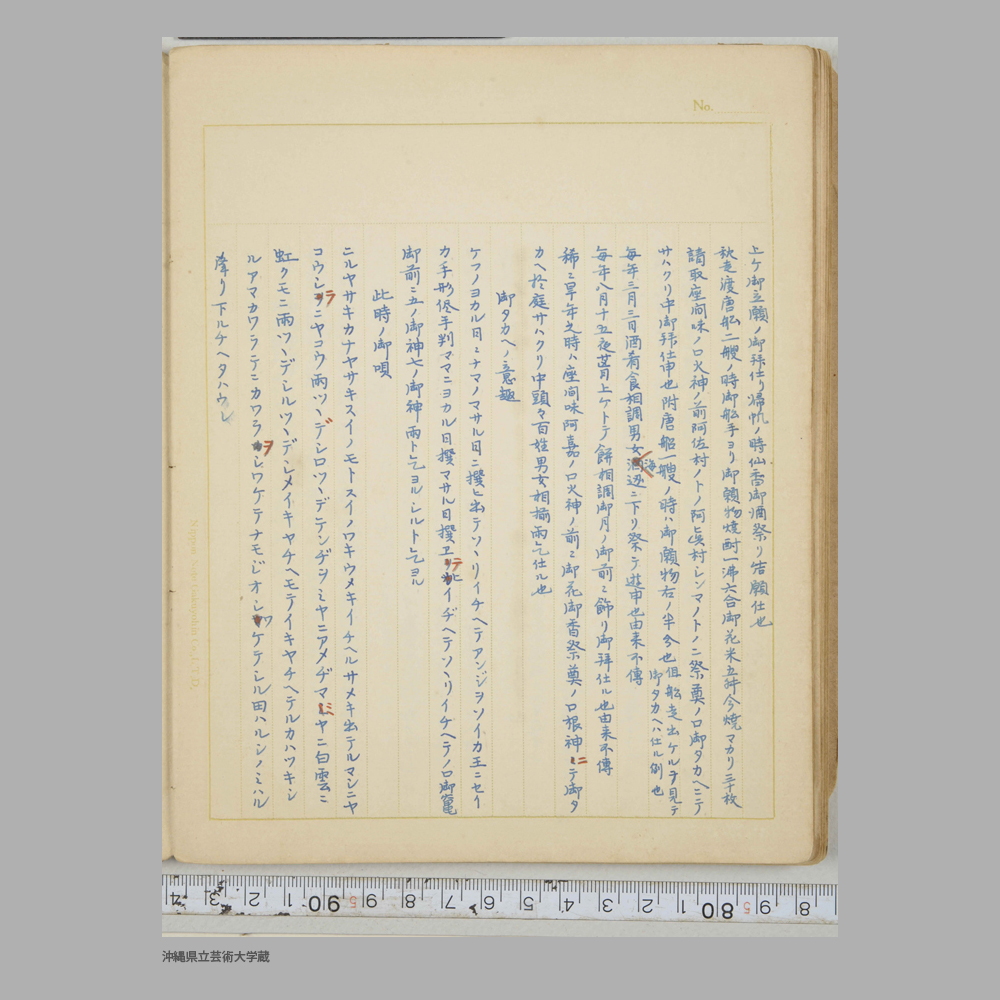 No.
上ケ御立願ノ御拝仕リ帰帆ノ時仙香御酒祭リ結願仕也
秋走渡唐船二艘ノ時御船手ヨリ御願物焼酎一沸六合御花米五舛今焼マカリ三十枚
請取座間味ノロ火神ノ前阿佐村ノトノ阿真村シンマノトノニ祭奠ノロ御タカヘニテ
サハクリ中御拝仕申也附唐船一艘ノ時ハ御願物右ノ半分也但船走出ケルヲ見テ
御タカヘハ仕ル例也
毎年三月三日酒肴食相調男女海辺ニ下リ祭テ遊申也由来不傳
毎年八月十五夜莒月上ケトテ餅相調御月ノ御前ニ飾リ御拝仕ル也由来不傳
稀ニ旱年之時ハ座間味阿嘉ノロ火神ノ前ニ御花御香祭奠ノロ根神ニテ御タ
カヘ於庭サハクリ中頭々百姓男女相揃雨乞仕ル也
御タカヘノ意趣
ケフノヨカル日ニナマノマサル日ニ撰ヒ出テソヽリイチヘテアンジヲソイカ王ニセイ
カ手形侭手判ママニヨカル日撰マサル日撰ヱリテイヂヘテソヽリイヂヘテノロ御竈
御前ニ五ノ御神七ノ御神雨ト乞ヨルシルト乞ヨル
此時ノ御唄
ニルヤサキカナヤサキスイノモトスイノワキウメキイチヘルサメキ出テルマシニヤ
コウシラニヤコウ雨ツヽデシロツヽデテンヂヲミヤニアメヂマミヤニ白雲ニ
虹クモニ雨ツヽデシルツヽデレメイキヤチヘモテノイキヤチヘテルカハツキシ
ルアマカワラテニカワラヲシワケテナモジオシワケテシル田ハルシノミハル
降リ下ルチヘタハウレ
Nippon
4 3 2 1 90 9 8 7 6 5 4 3 2 1 80 9 8
沖縄県立芸術大学蔵